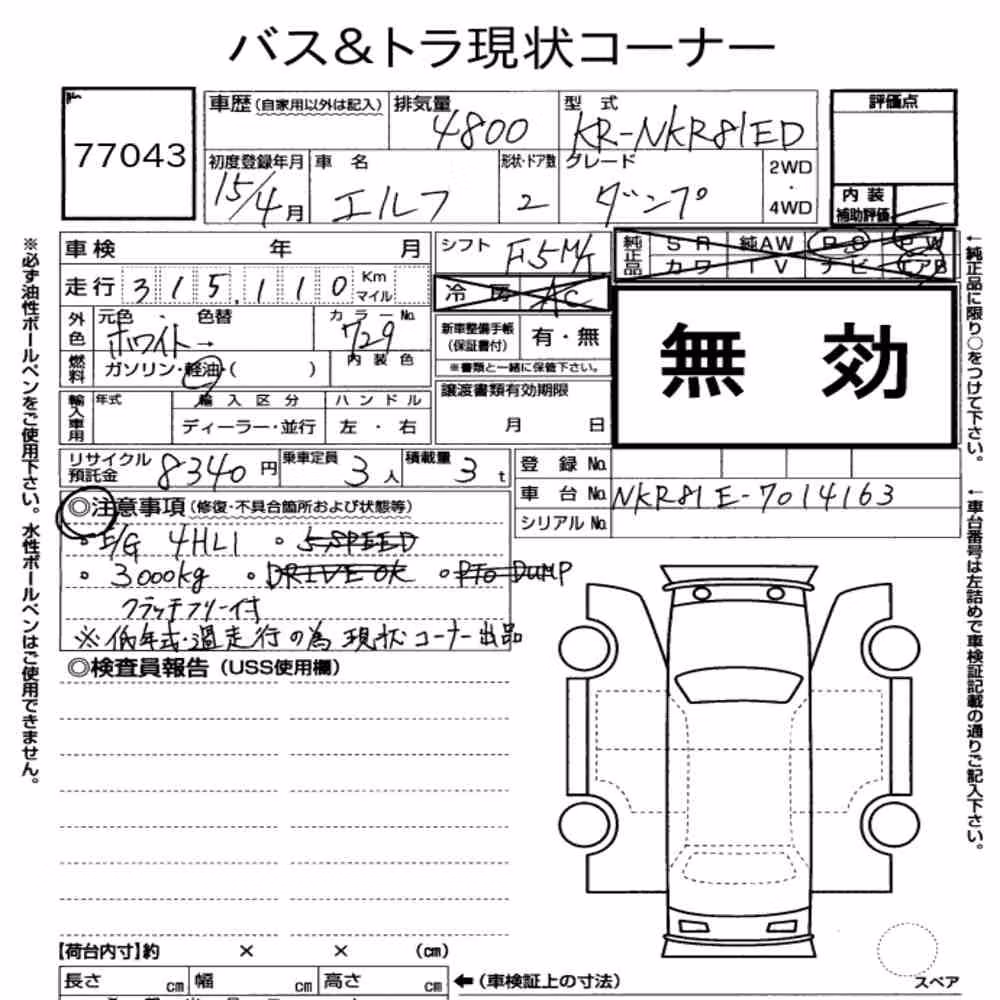 バス&トラ現状コーナー
77043
車歴(自家用以外は記入)
排気量
4800
型 式
KR-NKR81ED
評価点
初度登録年月
15/4月
車 名
エルフ
形状・ドア数
2
グレード
ダンプ
2WD
・
4WD
内 装
補助評価
車検 年 月
シフト
F5M/T
純正品
SR 純AW PS PW
カワ TV ナビ エアB
走行 315,110 Km マイル
冷 房 AC
外色
元色 ・ 色替
ホワイト→
カラーNo.
729
新車整備手帳
(保証書付)
有・無
※書類と一緒に保管下さい。
無 効
燃料
ガソリン・軽油・( )
内 装 色
輸入車用
年式
輸 入 区 分
ハ ン ド ル
ディーラー・並行
左 ・ 右
譲渡書類有効期限
月 日
リサイクル
預託金
8340 円
乗車定員
3 人
積載量
3 t
登 録 No.
車 台 No.
NKR81E-7014163
シリアル No.
◎注意事項(修復・不具合箇所および状態等)
・E/G 4HL1 ・5SPEED
・3000kg ・DRIVE OK ・PTO DUMP
クラッチフリー付
※低年式・過走行の為 現状コーナー出品
◎検査員報告(USS使用欄)
【荷台内寸】約 × × (cm)
長さ cm 幅 cm 高さ cm
←(車検証上の寸法)
スペア
※必ず油性ボールペンをご使用下さい。水性ボールペンはご使用できません。
←純正品に限り○をつけて下さい。
←車台番号は左詰めで車検証記載の通りご記入下さい。